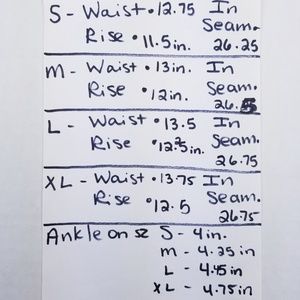 S - Waist • 12.75 In
Rise • 11.5 in. Seam. 26.25
M - Waist • 13 in. In
Rise • 12 in. Seam. 26.5
L - Waist • 13.5 In
Rise Seam.
26.75
XL - Waist • 13.75 In
Rise • 12.5 Seam.
26.75
Ankle on S - 4 in.
M - 4.25 in
L - 4.45 in
XL - 4.75 in